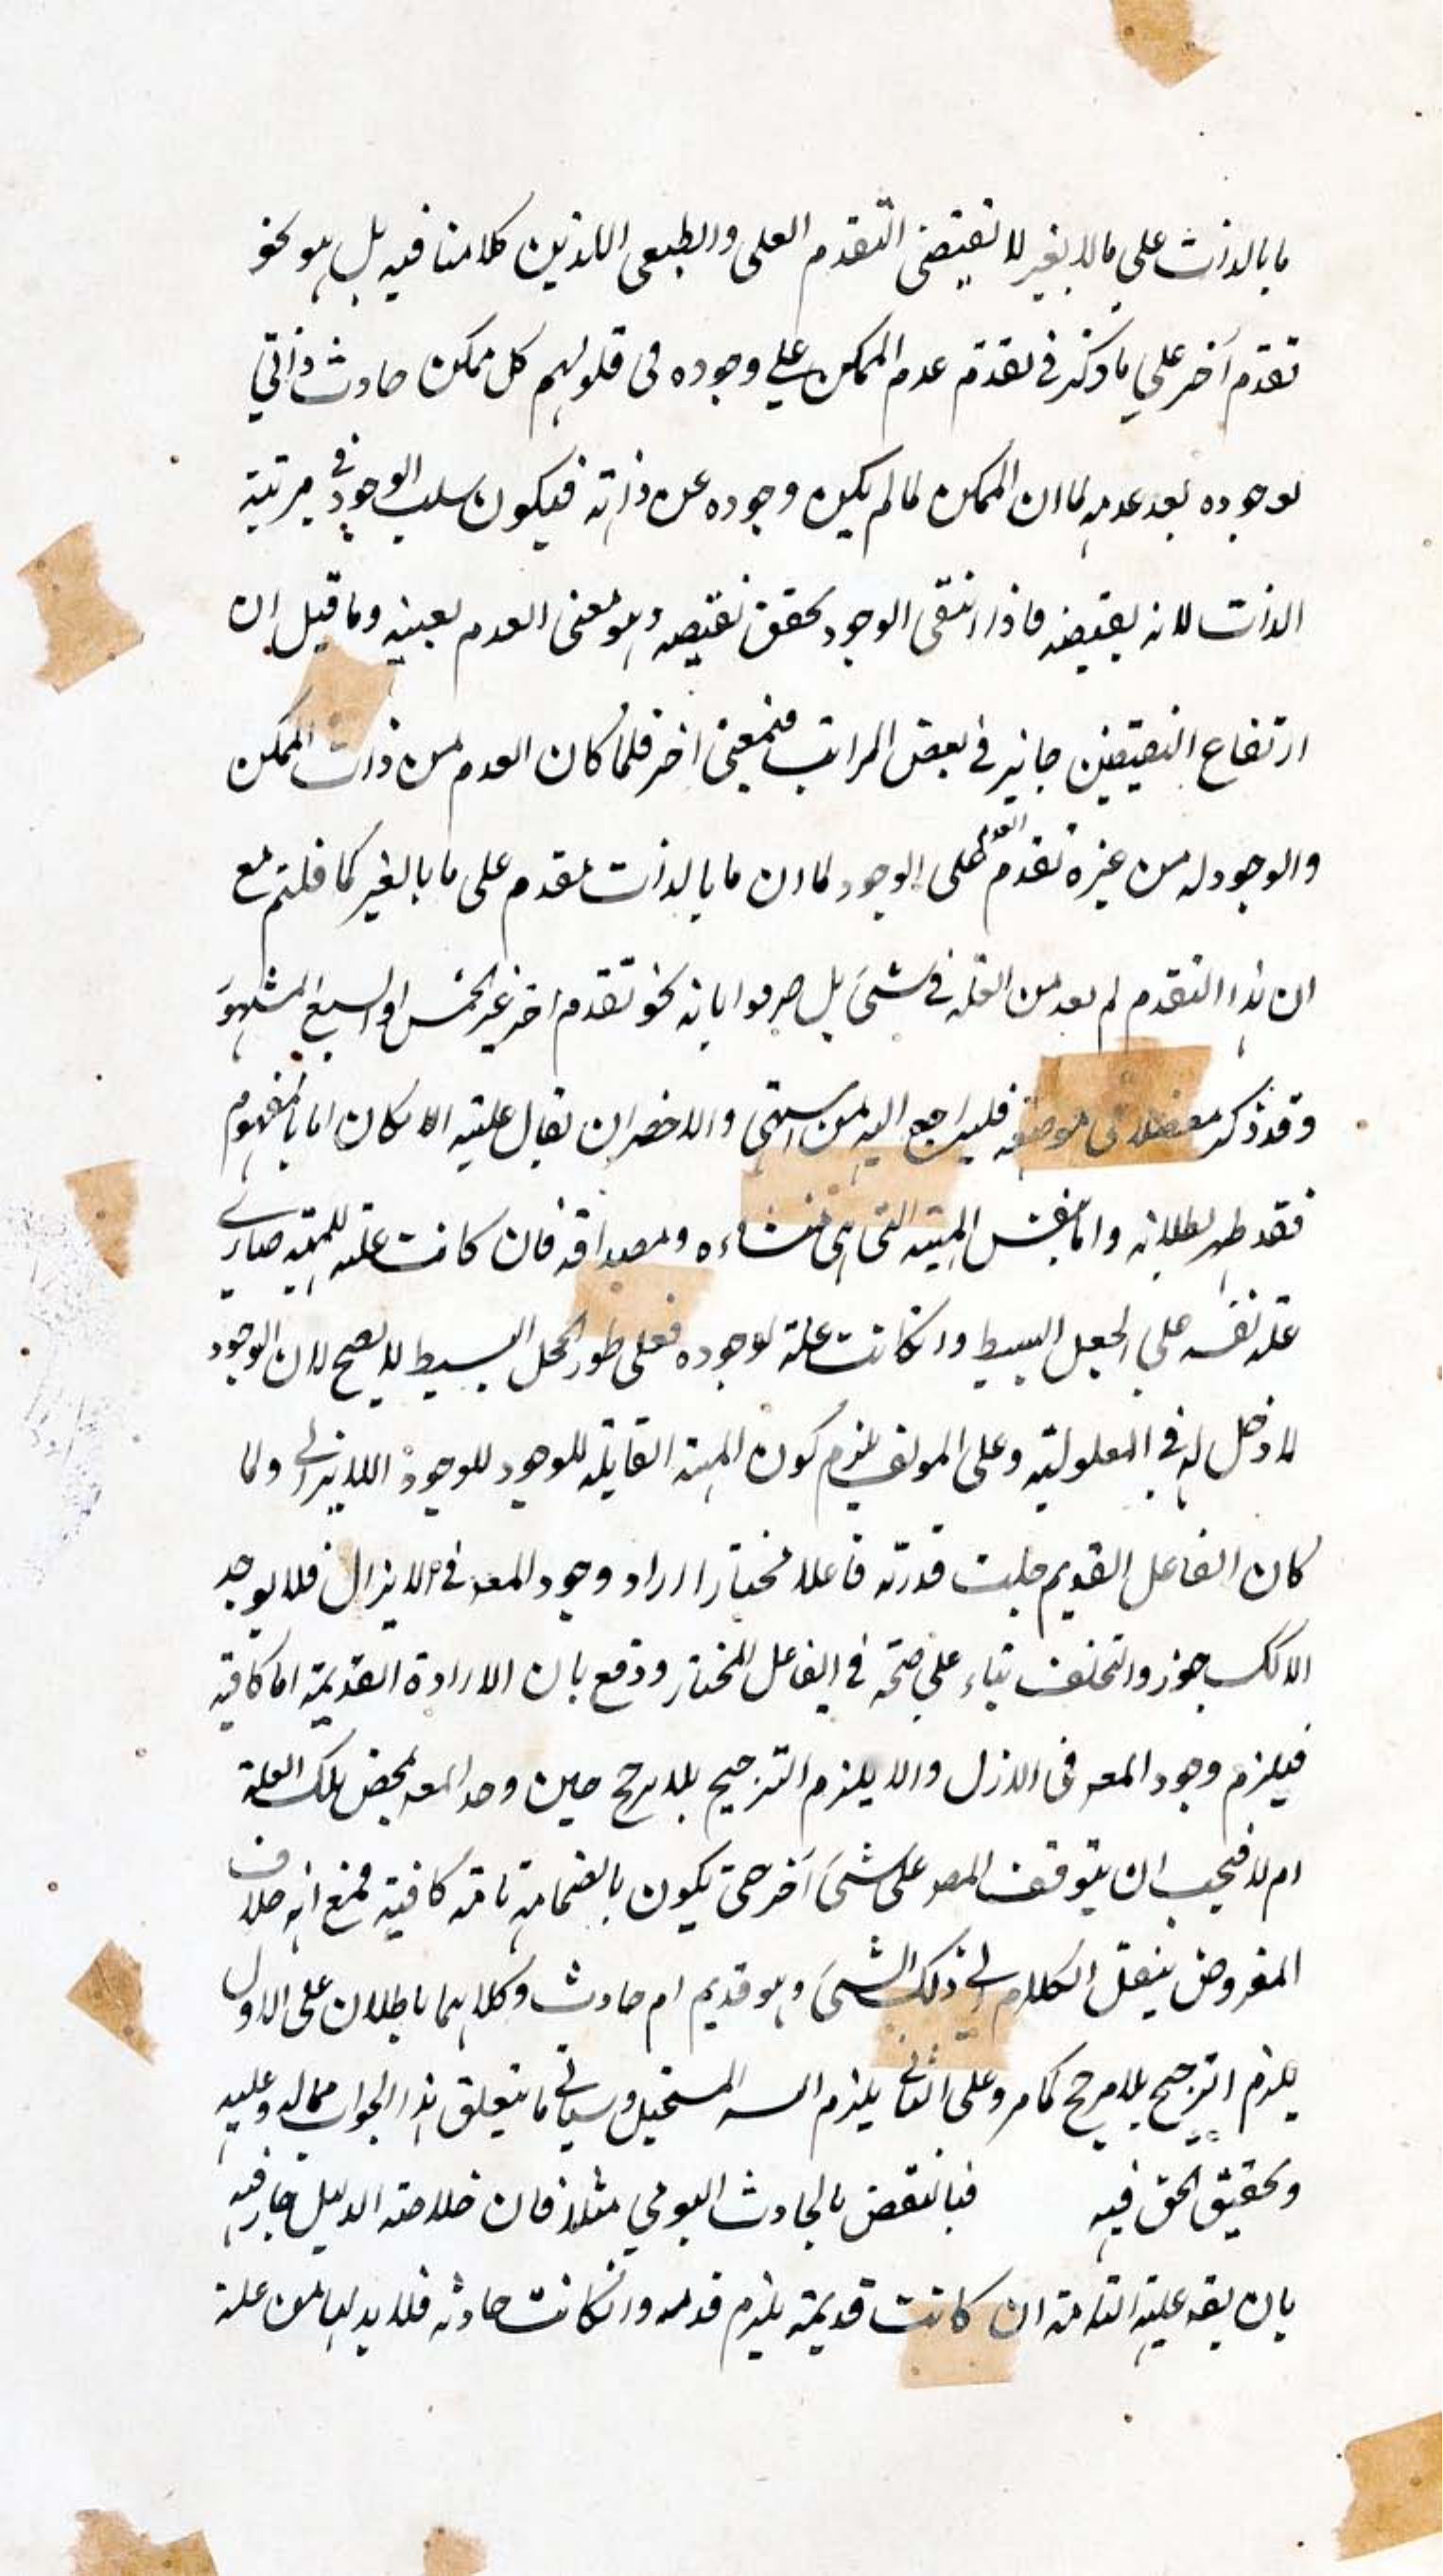 ما بالذات على ما بالغير لا تقتضى التقدم العلى والطبعى اللذين كلامنا فيه بل هو نحو
تقدم آخر على ما ذكر فى تقدم عدم الممكن على وجوده فى قولهم كل ممكن حادث ذاتي
لوجوده بعد عدمه لما ان الممكن لما لم يكن وجوده عن ذاته فيكون سلب الوجود فى مرتبة
الذات لانه يقيضه فاذا انتفى الوجود تحقق نقيضه وهو معنى العدم بعينه وما قيل ان
ارتفاع النقيضين جايز فى بعض المراتب فبمعنى اخر فلما كان العدم من ذات الممكن
والوجود له من غيره تقدم العدم على الوجود لما ان ما بالذات مقدم على ما بالغير كما قلتم مع
ان هذا التقدم لم يعد من العلة فى شئ بل صرحوا بانه نحو تقدم اخر غير الخمس او السبع المشهور
وقد ذكر مفصلا فى موضعه فليراجع اليه من اشتهى والاخصر ان يقال علية الامكان اما بالمفهوم
فقد ظهر بطلانه واما بنفس المهية التى هى منشاءه ومصداقه فان كانت علة للمهية صارت
علة نفسه على الجعل البسيط وانكانت علة لوجوده فعلى طور الجعل البسيط لا يصح لان الوجود
لا دخل له فى المعلولية وعلى المولف يلزم كون المهية القابلة للوجود للوجود اللايزالى ولما
كان الفاعل القديم جلت قدرته فاعلا مختارا اراد وجود المعـ فى اللايزال فلا يوجد
الا كك جوزوا التخلف بناء على صحته فى الفاعل المختار ودفع بان الارادة القديمة اما كافية
فيلزم وجود المعـ فى الازل والا يلزم الترجيح بلا مرجح حين وجد المعـ بمحض تلك العلة
ام لا فيجب ان يتوقف المعـ على شئ آخر حتى يكون بانضمامه تامة كافية فمع انه خلاف
المفروض ينقل الكلام الى ذلك الشئ وهو قديم ام حادث وكلاهما باطلان على الاول
يلزم الترجيح بلا مرجح كما مر وعلى الثانى يلزم التسـ المستحيل وسياتى ما يتعلق بهذا الجواب مما له وعليه
وتحقيق الحق فيه فبالنقض بالحادث اليومي مثلا فان خلاصة الدليل جار فيه
بان يقـ علته التامة ان كانت قديمة يلزم قدمه وانكانت حادثه فلا بد لها من علة